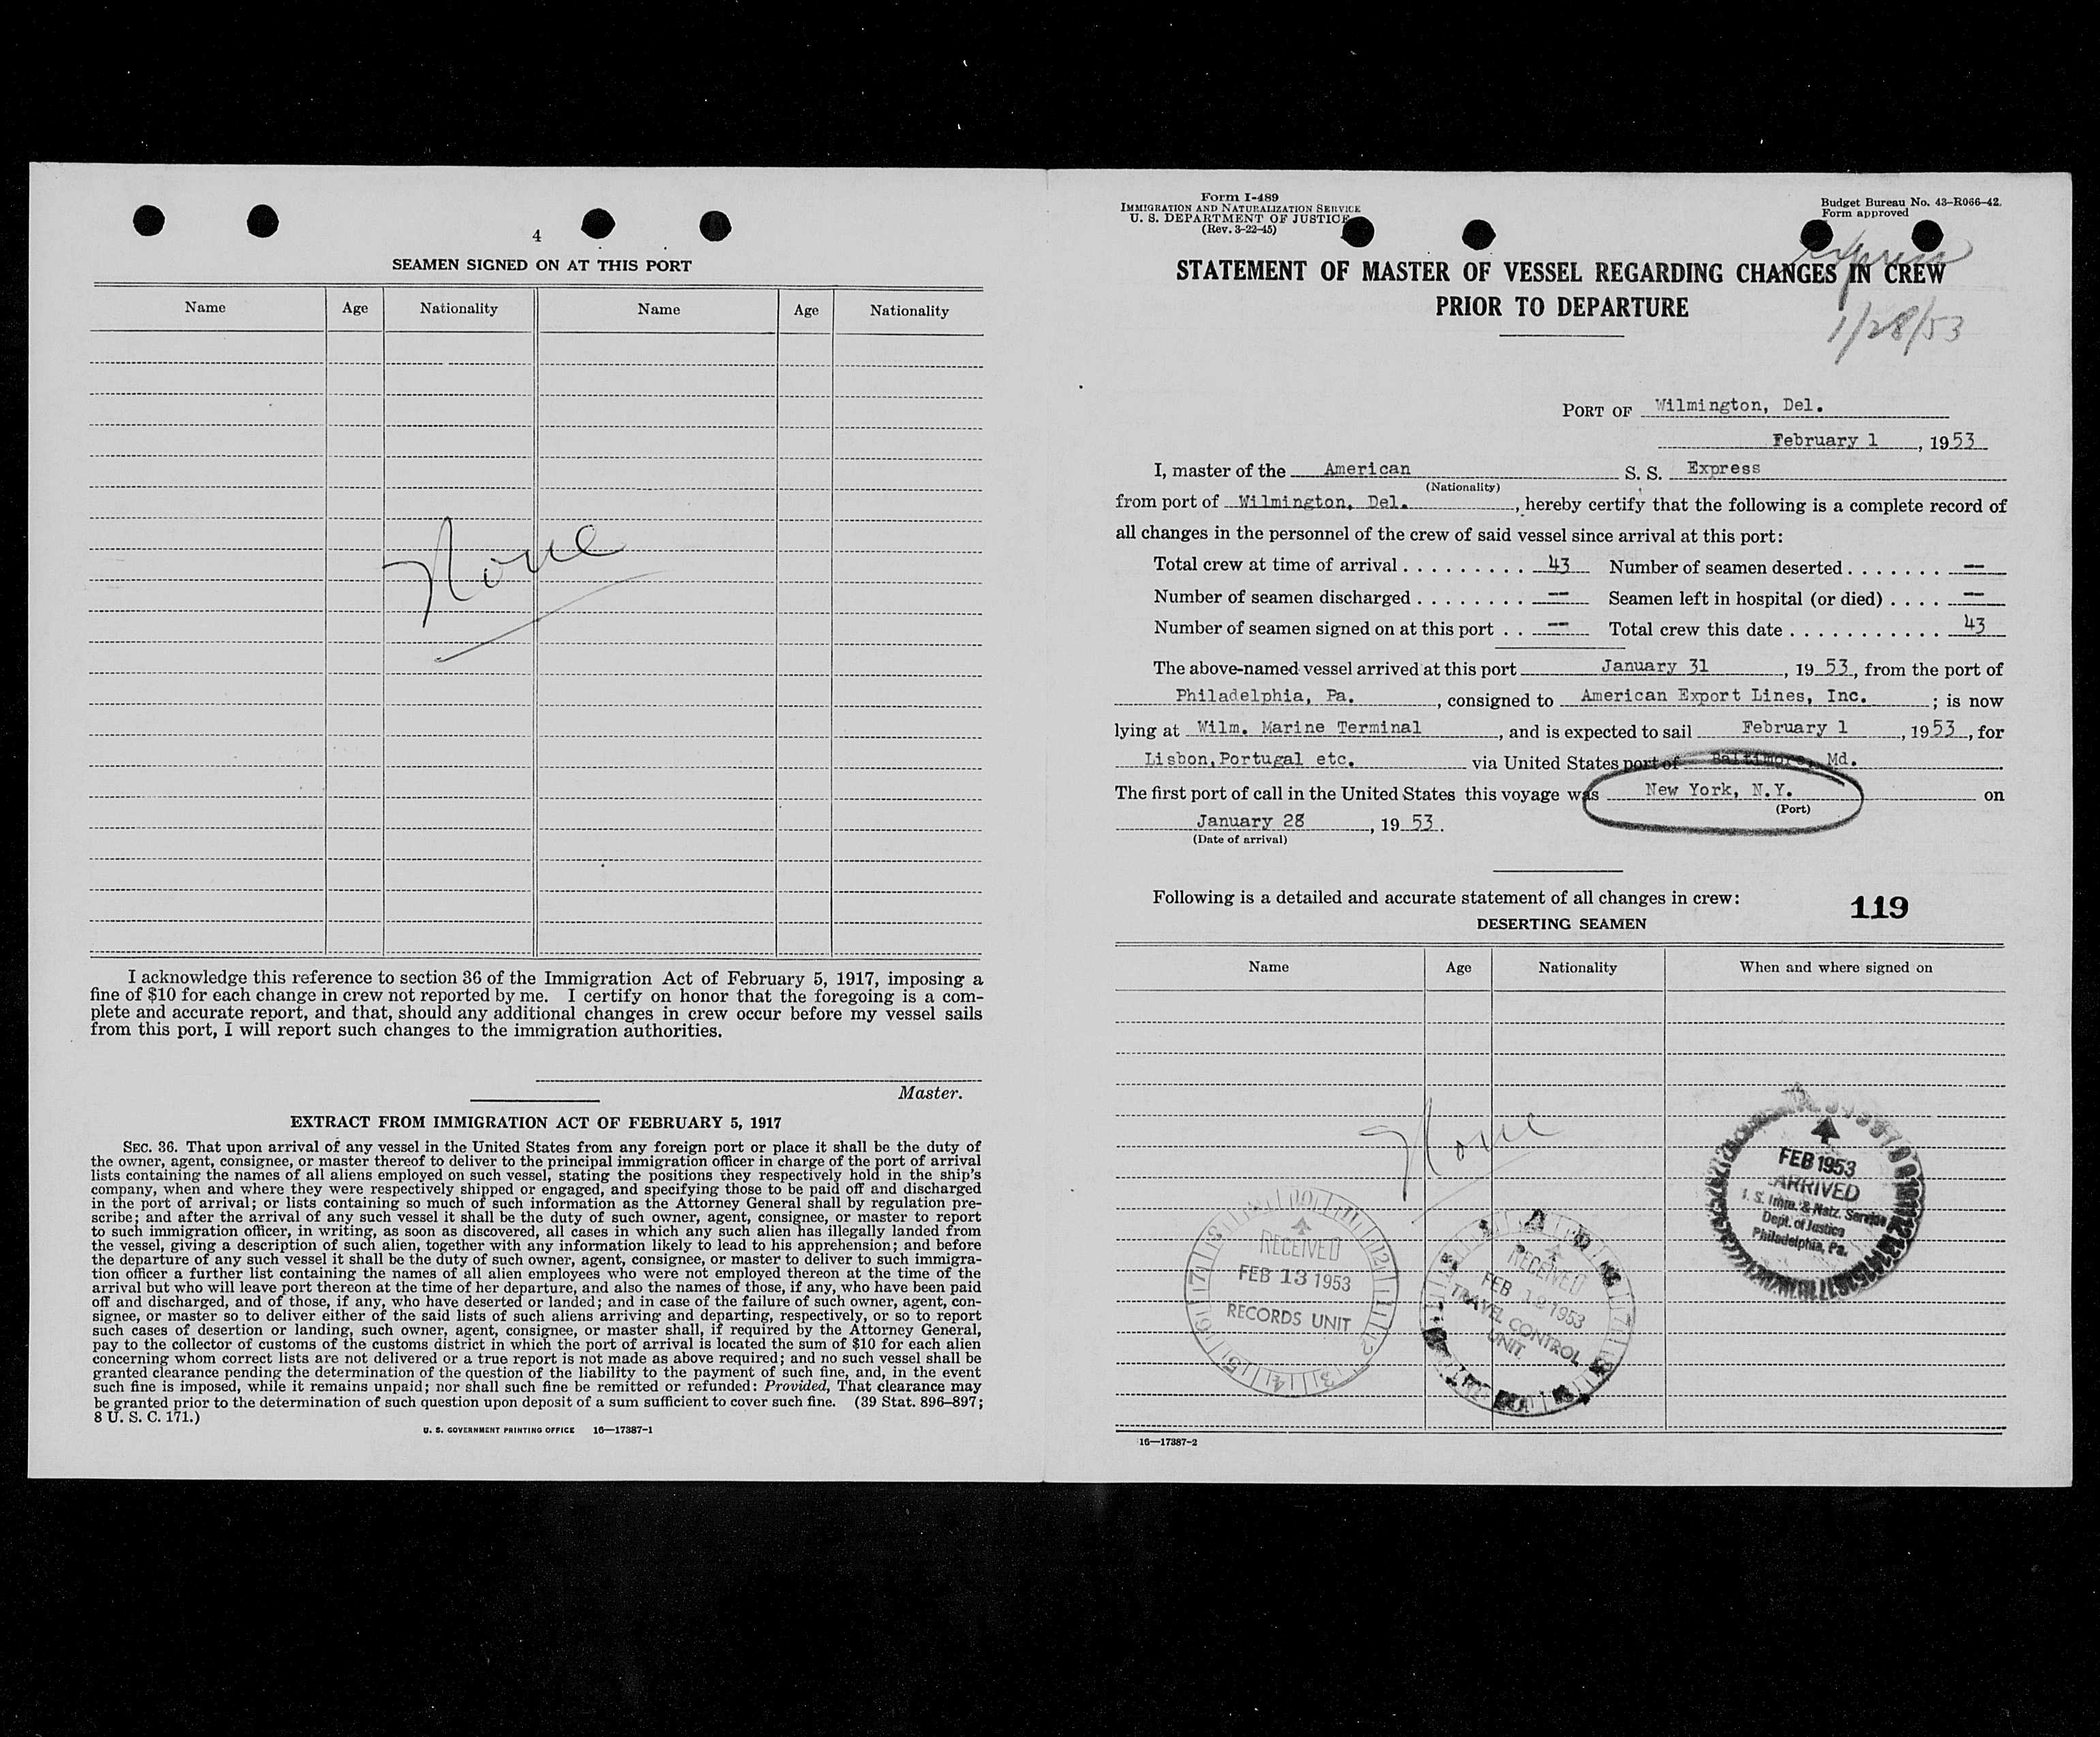 4
SEAMEN SIGNED ON AT THIS PORT
Name Age Nationality Name Age Nationality
None
I acknowledge this reference to section 36 of the Immigration Act of February 5, 1917, imposing a
fine of $10 for each change in crew not reported by me. I certify on honor that the foregoing is a com-
plete and accurate report, and that, should any additional changes in crew occur before my vessel sails
from this port, I will report such changes to the immigration authorities.
Master.
EXTRACT FROM IMMIGRATION ACT OF FEBRUARY 5, 1917
SEC. 36. That upon arrival of any vessel in the United States from any foreign port or place it shall be the duty of
the owner, agent, consignee, or master thereof to deliver to the principal immigration officer in charge of the port of arrival
lists containing the names of all aliens employed on such vessel, stating the positions they respectively hold in the ship's
company, when and where they were respectively shipped or engaged, and specifying those to be paid off and discharged
in the port of arrival; or lists containing so much of such information as the Attorney General shall by regulation pre-
scribe; and after the arrival of any such vessel it shall be the duty of such owner, agent, consignee, or master to report
to such immigration officer, in writing, as soon as discovered, all cases in which any such alien has illegally landed from
the vessel, giving a description of such alien, together with any information likely to lead to his apprehension; and before
the departure of any such vessel it shall be the duty of such owner, agent, consignee, or master to deliver to such immigra-
tion officer a further list containing the names of all alien employees who were not employed thereon at the time of the
arrival but who will leave port thereon at the time of her departure, and also the names of those, if any, who have been paid
off and discharged, and of those, if any, who have deserted or landed; and in case of the failure of such owner, agent, con-
signee, or master so to deliver either of the said lists of such aliens arriving and departing, respectively, or so to report
such cases of desertion or landing, such owner, agent, consignee, or master shall, if required by the Attorney General,
pay to the collector of customs of the customs district in which the port of arrival is located the sum of $10 for each alien
concerning whom correct lists are not delivered or a true report is not made as above required; and no such vessel shall be
granted clearance pending the determination of the question of the liability to the payment of such fine, and, in the event
such fine is imposed, while it remains unpaid; nor shall such fine be remitted or refunded: Provided, That clearance may
be granted prior to the determination of such question upon deposit of a sum sufficient to cover such fine. (39 Stat. 896–897;
8 U. S. C. 171.)
U. S. GOVERNMENT PRINTING OFFICE 16—17387-1
Form I-489
IMMIGRATION AND NATURALIZATION SERVICE
U. S. DEPARTMENT OF JUSTICE
(Rev. 3-22-45)
Budget Bureau No. 43-R066-42.
Form approved
Express
STATEMENT OF MASTER OF VESSEL REGARDING CHANGES IN CREW
PRIOR TO DEPARTURE
1/28/53
PORT OF Wilmington, Del.
February 1, 1953
I, master of the American S. S. Express
(Nationality)
from port of Wilmington, Del., hereby certify that the following is a complete record of
all changes in the personnel of the crew of said vessel since arrival at this port:
Total crew at time of arrival . . . . . . . . . 43 Number of seamen deserted . . . . . . . --
Number of seamen discharged . . . . . . . . -- Seamen left in hospital (or died) . . . . --
Number of seamen signed on at this port . . -- Total crew this date . . . . . . . . . . . 43
The above-named vessel arrived at this port January 31, 1953, from the port of
Philadelphia, Pa., consigned to American Export Lines, Inc.; is now
lying at Wilm. Marine Terminal, and is expected to sail February 1, 1953, for
Lisbon, Portugal etc. via United States port of Baltimore, Md.
The first port of call in the United States this voyage was New York, N.Y. on
(Port)
January 28, 1953.
(Date of arrival)
Following is a detailed and accurate statement of all changes in crew:
119
DESERTING SEAMEN
Name Age Nationality When and where signed on
None
FEB 1953
ARRIVED
Imm. & Natz. Service
Dept. of Justice
Philadelphia, Pa.
RECEIVED
FEB 13 1953
RECORDS UNIT
RECEIVED
FEB 12 1953
TRAVEL CONTROL
UNIT
16—17387-2